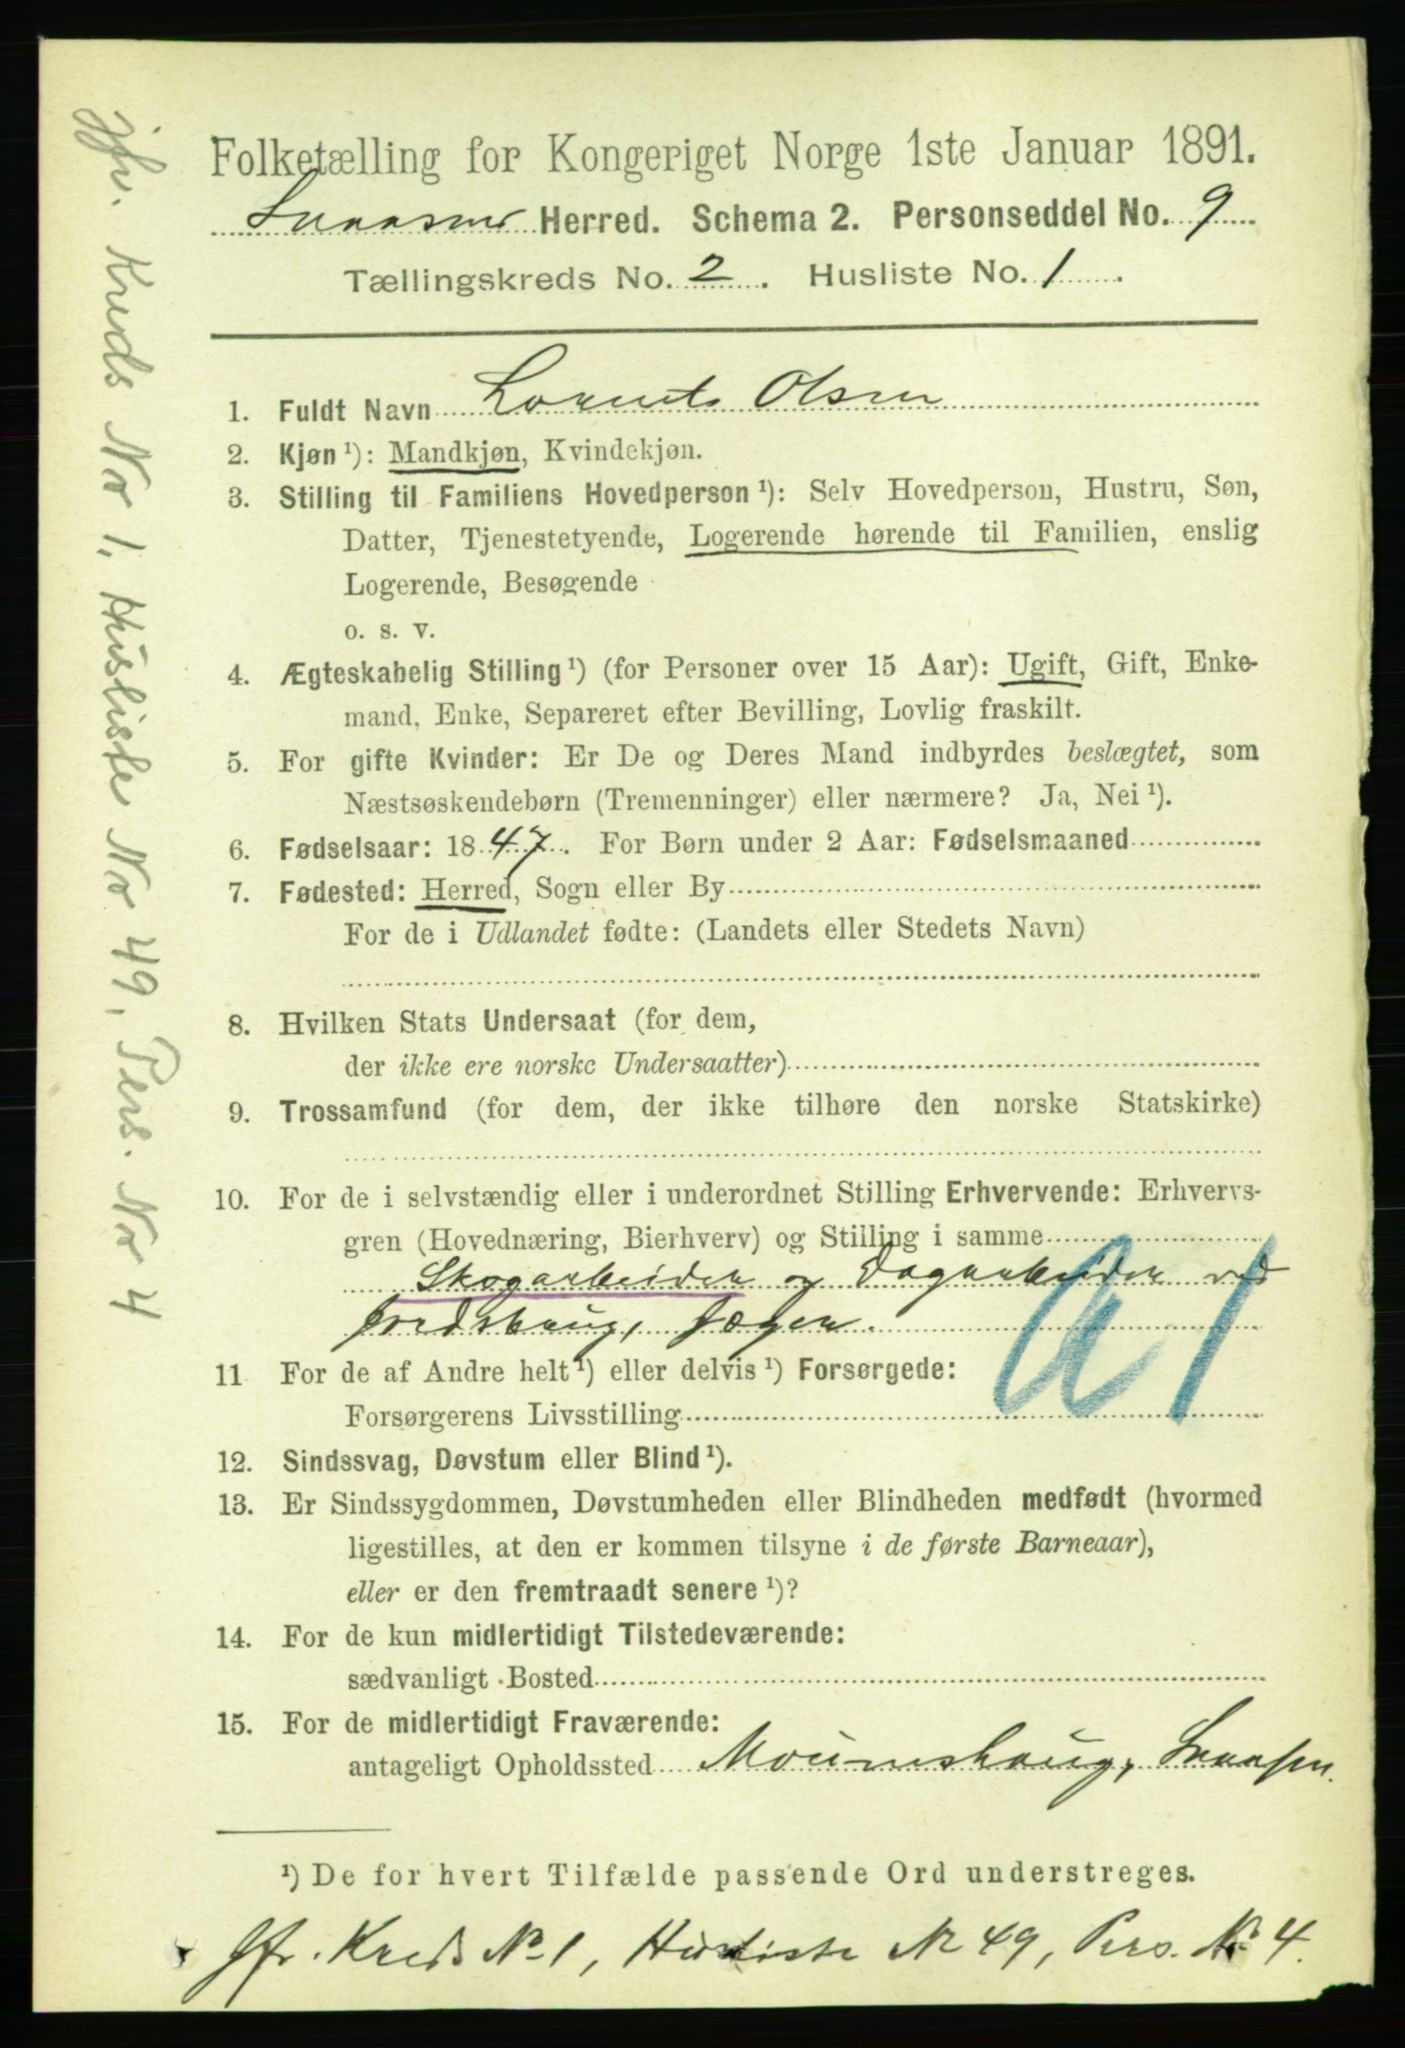 Folketælling for Kongeriget Norge 1ste Januar 1891.
Snaasens Herred. Schema 2. Personseddel No. 9
Tællingskreds No. 2. Husliste No. 1.
1. Fuldt Navn Lorents Olsen
2. Kjøn ¹): Mandkjøn, Kvindekjøn.
3. Stilling til Familiens Hovedperson ¹): Selv Hovedperson, Hustru, Søn,
Datter, Tjenestetyende, Logerende hørende til Familien, enslig
Logerende, Besøgende
o. s. v.
4. Ægteskabelig Stilling ¹) (for Personer over 15 Aar): Ugift, Gift, Enke-
mand, Enke, Separeret efter Bevilling, Lovlig fraskilt.
5. For gifte Kvinder: Er De og Deres Mand indbyrdes beslægtet, som
Næstsøskendebørn (Tremenninger) eller nærmere? Ja, Nei ¹).
6. Fødselsaar: 1847. For Børn under 2 Aar: Fødselsmaaned
7. Fødested: Herred, Sogn eller By
For de i Udlandet fødte: (Landets eller Stedets Navn)
8. Hvilken Stats Undersaat (for dem,
der ikke ere norske Undersaatter)
9. Trossamfund (for dem, der ikke tilhøre den norske Statskirke)
10. For de i selvstændig eller i underordnet Stilling Erhvervende: Erhvervs-
gren (Hovednæring, Bierhverv) og Stilling i samme
Skogarbeider og Dagarbeider ved
Jordbrug, Jæger. A1
11 For de af Andre helt ¹) eller delvis ¹) Forsørgede:
Forsørgerens Livsstilling
12. Sindssvag, Døvstum eller Blind ¹).
13. Er Sindssygdommen, Døvstumheden eller Blindheden medfødt (hvormed
ligestilles, at den er kommen tilsyne i de første Barneaar),
eller er den fremtraadt senere ¹)?
14. For de kun midlertidigt Tilstedeværende:
sædvanligt Bosted
15. For de midlertidigt Fraværende:
antageligt Opholdssted Snaasen.
¹) De for hvert Tilfælde passende Ord understreges.
Jfr. Kreds No 1, Husliste No 49, Pers. No 4.
jfr. Kreds No 1, Husliste No 49, Pers. No 4